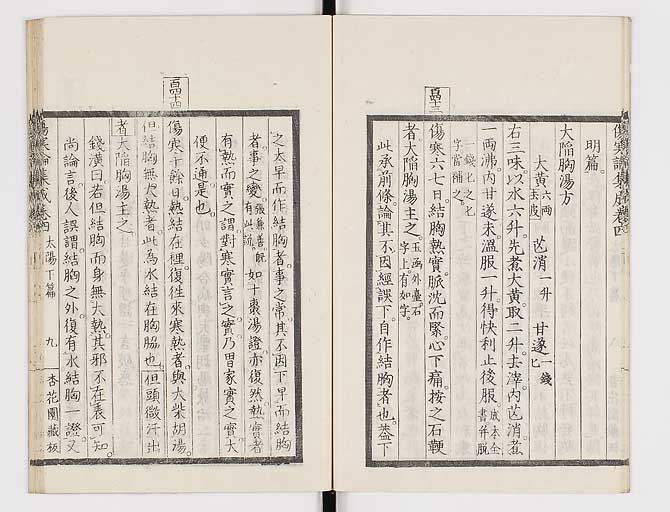 傷寒論集成卷四
明篇。
大陷胸湯方
大黃六兩去皮 芒消一升 甘遂一錢匕
右三味。以水六升。先煮大黃。取二升。去滓。內芒消。煮
一兩沸。內甘遂末。溫服一升。得快利止後服。成本全書并脫
一錢匕之七字當補之。
百四十三
傷寒六七日。結胸熱實。脈沈而緊。心下痛。按之石鞕
者。大陷胸湯主之。玉函外臺石字上。有如字。
此承前條。論其不因經誤下。自作結胸者也。蓋下
之太早而作結胸者。事之常。其不因下早而結胸
者。事之變。張兼善既有此說。如十棗湯證亦復然。熱實者
有熱而實之謂。對寒實言之。實乃胃家實之實。大
便不通是也。
百四十四
傷寒十餘日。熱結在裡。復往來寒熱者。與大柴胡湯。
但結胸無大熱者。此為水結在胸脇也。但頭微汗出
者。大陷胸湯主之。
錢潢曰。若但結胸而身無大熱。其邪不在表可知。
尚論言後人誤謂結胸之外。復有水結胸一證。又
傷寒論集成卷四 太陽下篇 九 杏花園藏板